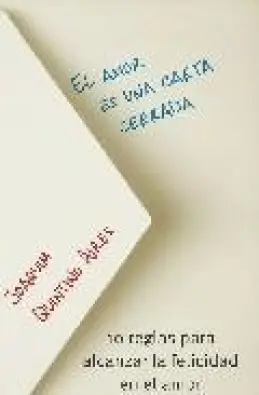 EL AMOR
ES UNA CARTA
CERRADA
JOAQUIM
QUINTINO AIRES
10 reglas para
alcanzar la felicidad
en el amor